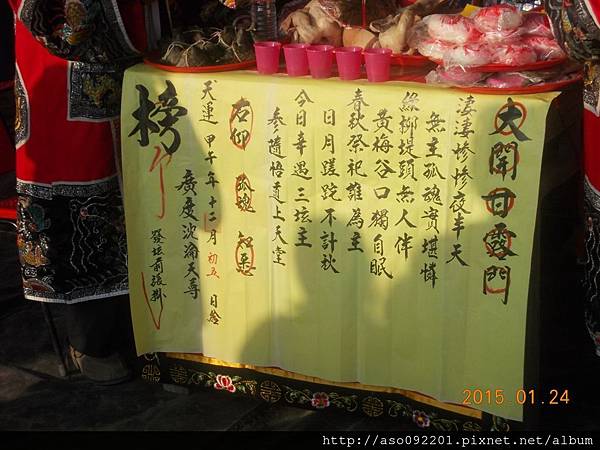 大開甘露門
無主孤魂實堪憐
淒淒慘慘夜半天
綠柳堤頭無人伴
黃梅谷口獨自眠
春秋祭祀誰為主
日月蹉跎不計秋
今日幸遇三壇主
參隨悟道上天堂
右仰 孤魂 知悉
天運 甲午年十二月初五日給
廣度沈淪天尊
榜
發壇前張掛
2015.01.24
http://aso092201.pixnet.net/album